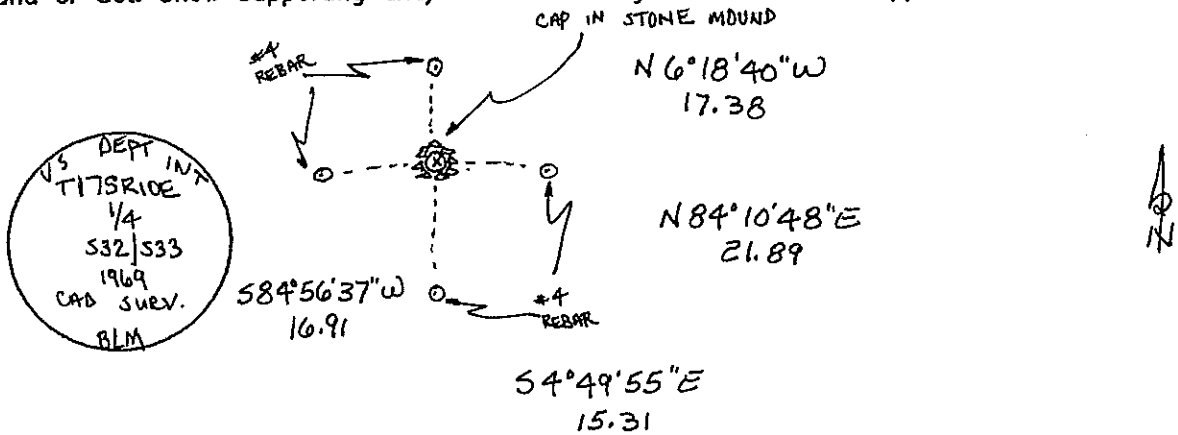 CAP IN STONE MOUND
#4
REBAR
N 6°18'40"W
17.38
US DEPT INT
T17SR10E
1/4
S32|S33
1969
CAD SURV.
BLM
N 84°10'48"E
21.89
S84°56'37"W
16.91
#4
REBAR
S 4°49'55"E
15.31
N